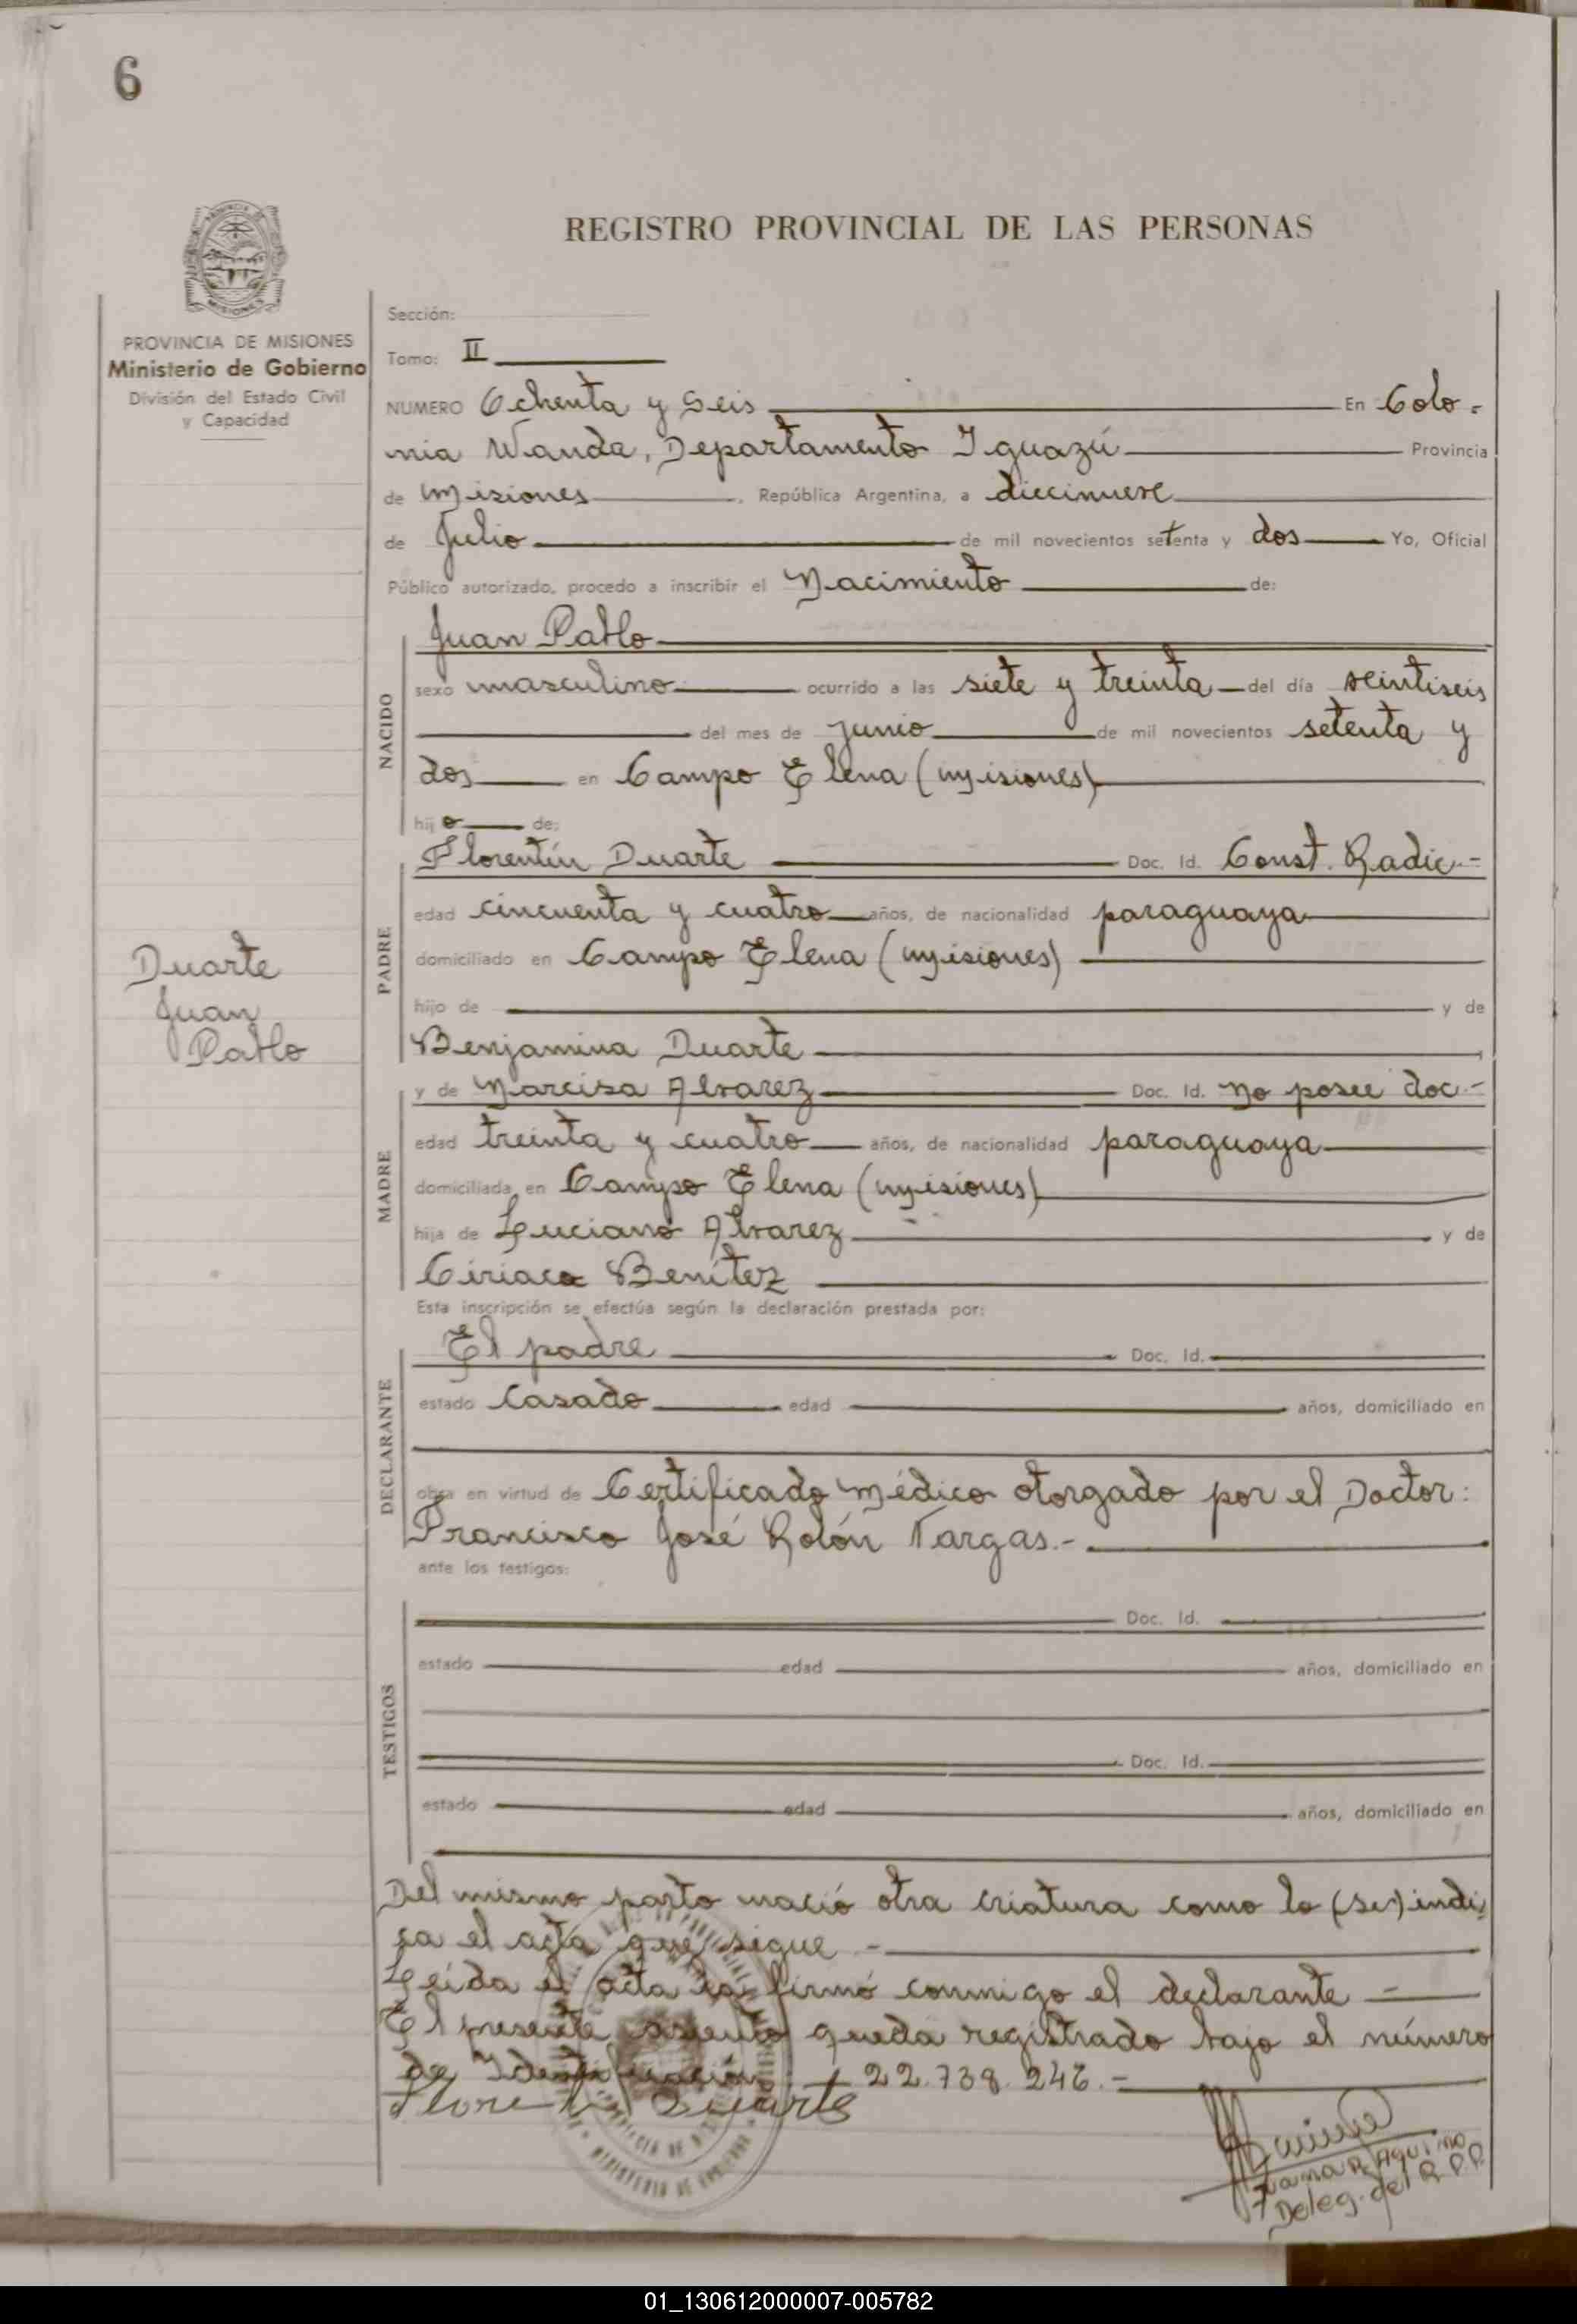 6
REGISTRO PROVINCIAL DE LAS PERSONAS
PROVINCIA DE MISIONES
Ministerio de Gobierno
División del Estado Civil
y Capacidad
Sección:
Tomo: II
NUMERO Ochenta y Seis En Colo-
nia Wanda, Departamento Iguazú Provincia
de Misiones, República Argentina, a diecinueve
de Julio de mil novecientos setenta y dos Yo, Oficial
Público autorizado, procedo a inscribir el Nacimiento de:
NACIDO
Juan Pablo
sexo masculino ocurrido a las siete y treinta del día veintiseis
del mes de junio de mil novecientos setenta y
dos en Campo Elena (Misiones)
hijo de:
PADRE
Florentín Duarte Doc. Id. Const. Radic.-
edad cincuenta y cuatro años, de nacionalidad paraguaya
domiciliado en Campo Elena (Misiones)
hijo de y de
Benjamina Duarte
Duarte
Juan
Pablo
MADRE
y de Narcisa Alvarez Doc. Id. No posee doc.-
edad treinta y cuatro años, de nacionalidad paraguaya
domiciliada en Campo Elena (Misiones)
hija de Luciano Alvarez y de
Ciriaca Benítez
Esta inscripción se efectúa según la declaración prestada por:
DECLARANTE
El padre Doc. Id.
estado Casado edad años, domiciliado en
obra en virtud de Certificado Médico otorgado por el Doctor:
Francisco José Rolón Vargas.-
ante los testigos:
TESTIGOS
Doc. Id.
estado edad años, domiciliado en
Doc. Id.
estado edad años, domiciliado en
Del mismo parto nació otra criatura como lo (se) indi-
ca el acta que sigue.-
Leída el acta la firmó conmigo el declarante.-
El presente asiento queda registrado bajo el número
de Identificación: 22.738.246.-
Florentin Duarte
Aquino
Deleg. del R.P.P.
01_130612000007-005782